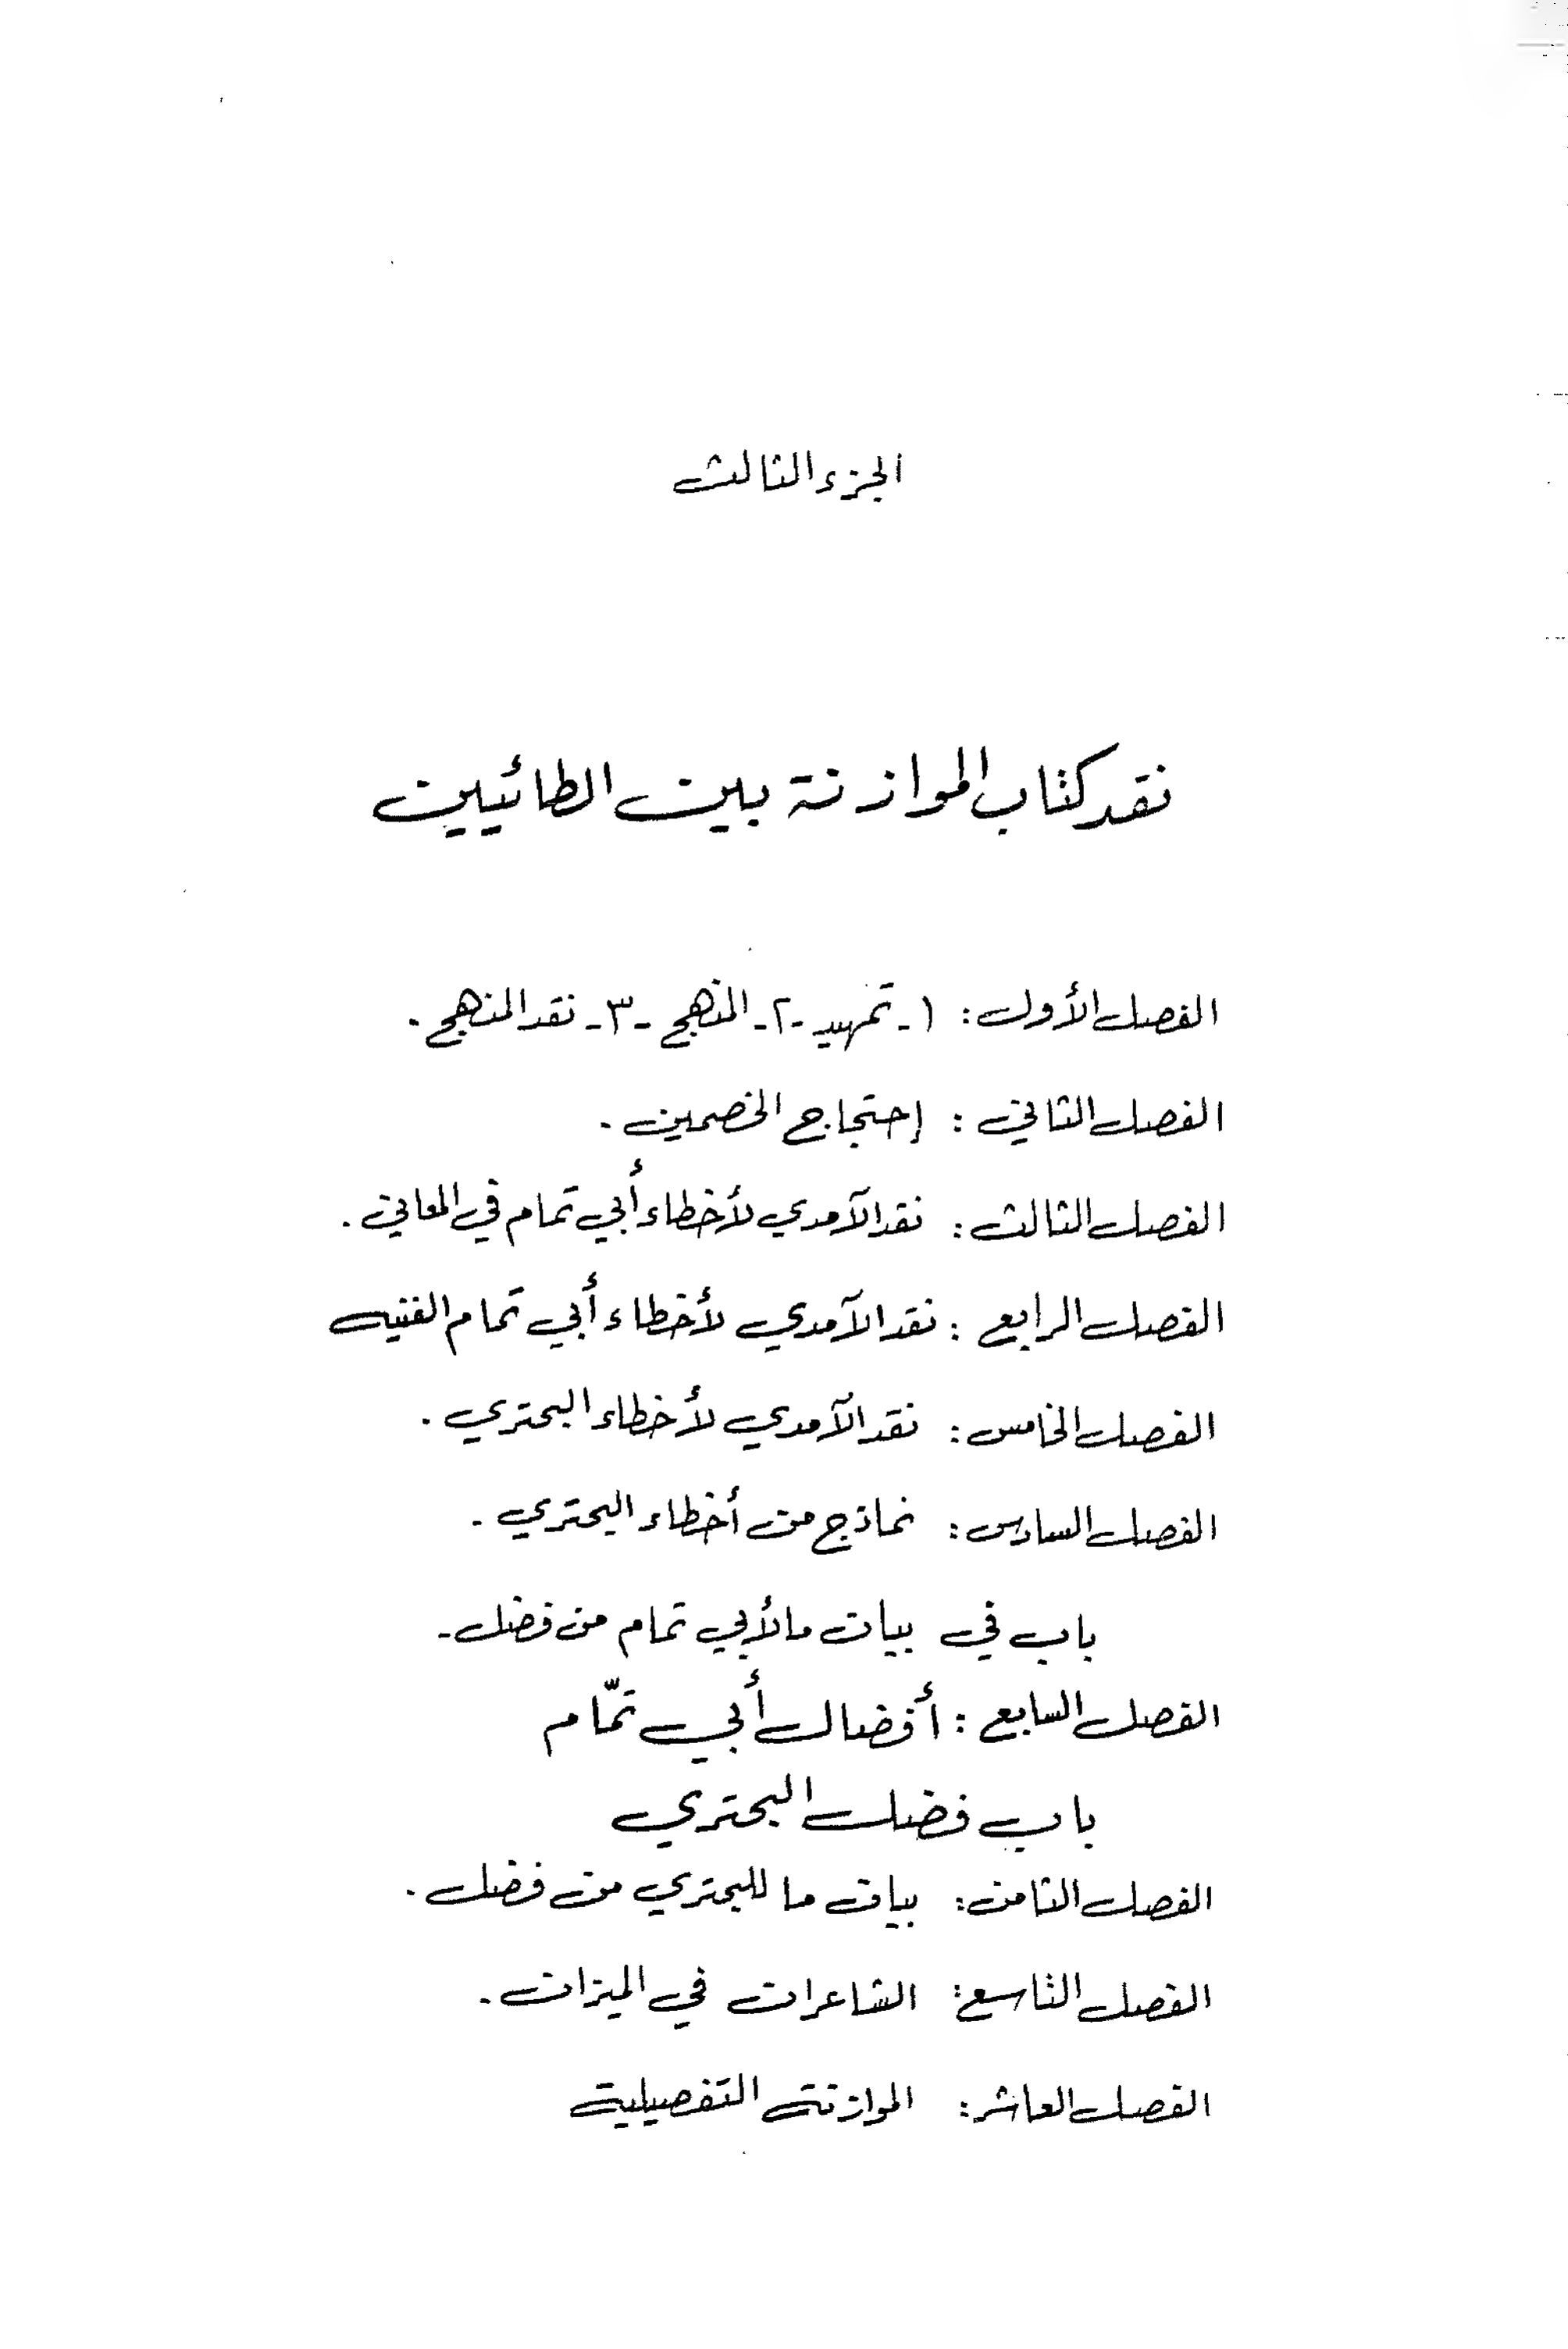 الجزء الثالث
نقد كتاب الموازنة بين الطائيين
الفصل الأول: ١- تمهيد -٢- المنهج -٣- نقد المنهج.
الفصل الثاني: إحتجاج الخصمين.
الفصل الثالث: نقد الآمدي لأخطاء أبي تمام في المعاني.
الفصل الرابع: نقد الآمدي لأخطاء أبي تمام الفنيه
الفصل الخامس: نقد الآمدي لأخطاء البحتري.
الفصل السادس: نماذج من أخطاء البحتري.
باب في بيان ما لأبي تمام من فضل.
الفصل السابع: أفضال أبي تمّام
باب فضل البحتري
الفصل الثامن: بيان ما للبحتري من فضل.
الفصل التاسع: الشاعران في الميزان.
الفصل العاشر: الموازنة التفصيلية